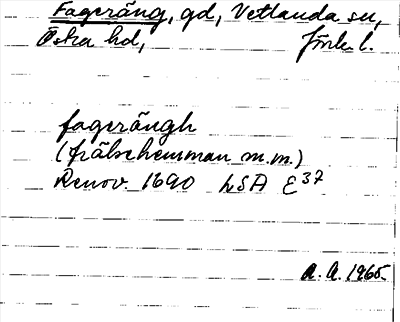 Fageräng, gd, Vetlanda sn,
Östra hd, Jönk. l.
fagerängh
(frälsehemman m.m.)
Renov. 1690 LSA E 37
A.A. 1965.